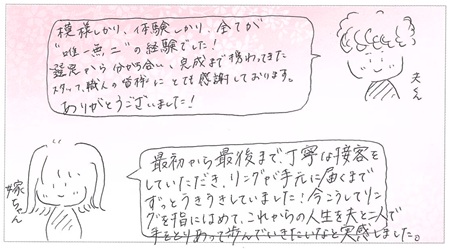 模様しかり、体験しかり、全てが
"唯一無二"の経験でした！
発足から分かち合い、完成まで携わってきた
スタッフ、職人の皆様にとても感謝しております。
ありがとうございました！
夫くん
最初から最後まで丁寧な接客を
していただき、リングが手元に届くまで
ずっとうきうきしていました！今こうしてリン
グを指にはめて、これからの人生を夫と二人で
手をとりあって歩んでいきたいなと実感しました。
嫁ちゃん